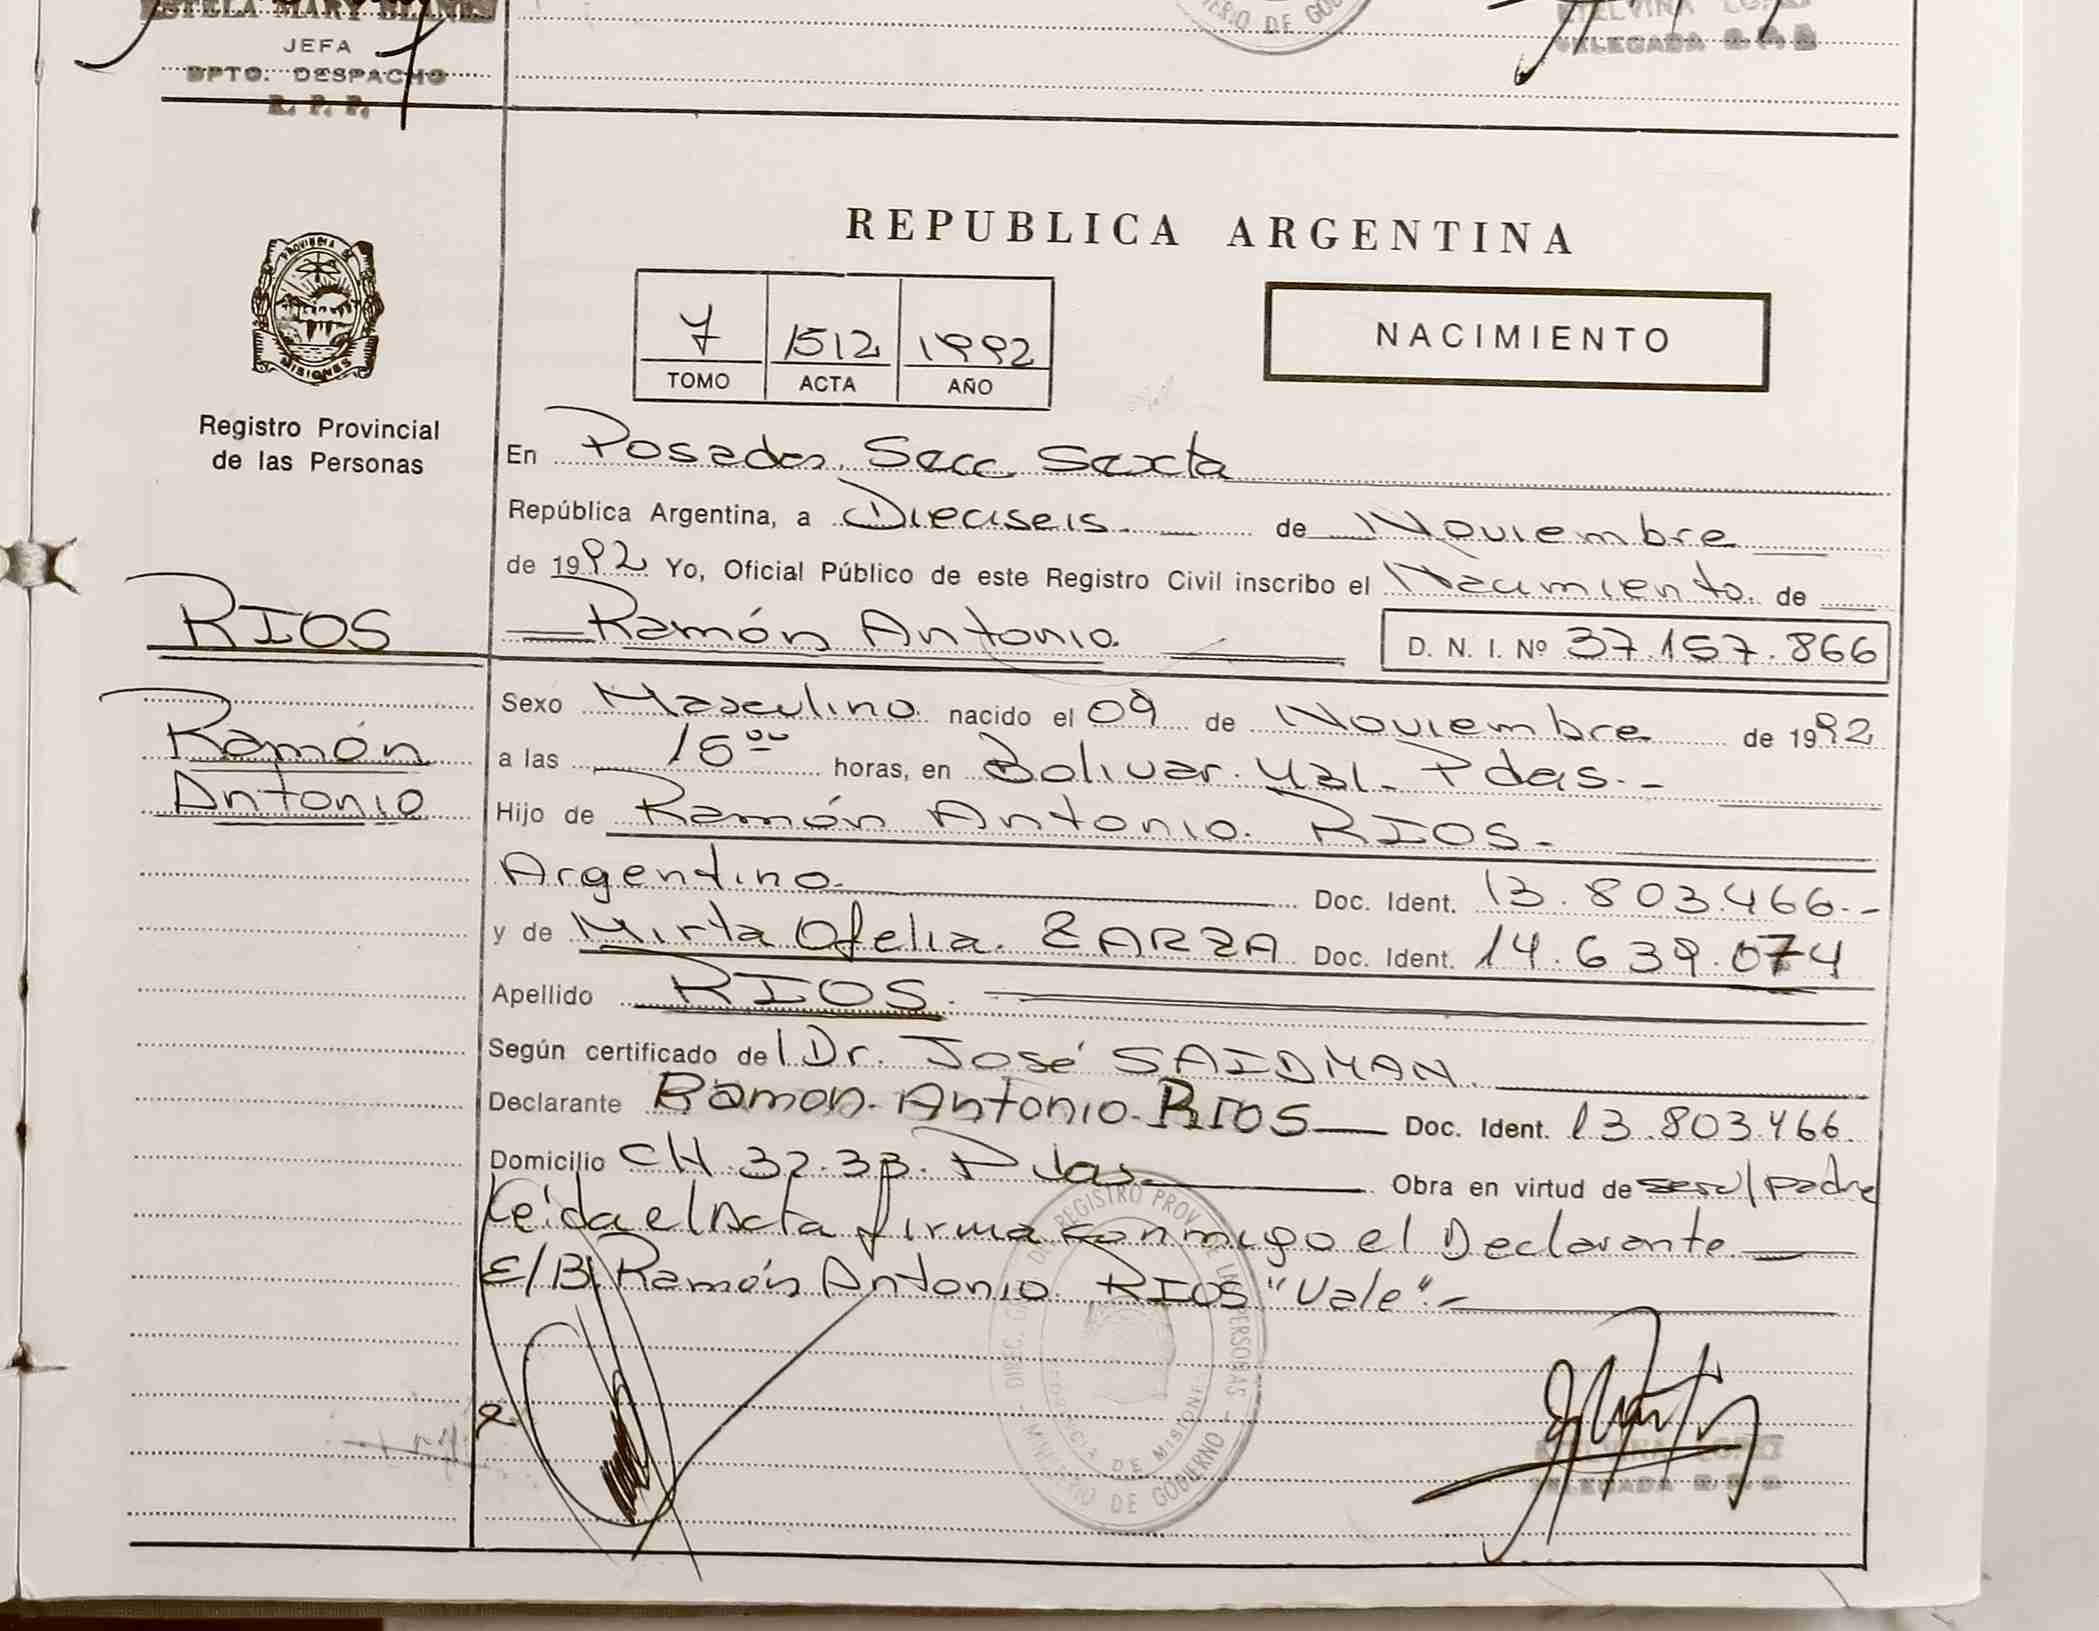 ESTELA MARY
JEFA
DPTO. DESPACHO
R. P. P.
DELEGADA R.P.P.
REPUBLICA ARGENTINA
PROVINCIA DE
MISIONES
7 1512 1992
TOMO ACTA AÑO
NACIMIENTO
Registro Provincial
de las Personas
En Posadas Secc Sexta
República Argentina, a Dieciseis de Noviembre
de 1992 Yo, Oficial Público de este Registro Civil inscribo el Nacimiento de
RIOS
Ramón Antonio D. N. I. Nº 37.157.866
Sexo Masculino nacido el 09 de Noviembre de 1992
Ramón
Antonio
a las horas, en Bolivar. 431. Pdas.-
Hijo de Ramón Antonio. RIOS.-
Argentino Doc. Ident. 13.803.466.-
y de Mirta Ofelia. ZARZA Doc. Ident. 14.639.074
Apellido RIOS.
Según certificado del Dr. José SAIDMAN.
Declarante Ramon. Antonio. RIOS Doc. Ident. 13.803.466.
Domicilio CH 32.33. Pdas Obra en virtud de ser el padre
Leida el Acta firma conmigo el Declarante
E/B. Ramón Antonio RIOS "Vale".-
DIREC. GRAL. DEL REGISTRO PROV. DE LAS PERSONAS
PROVINCIA DE MISIONES
MINISTERIO DE GOBIERNO
DELEGADA R.P.P.